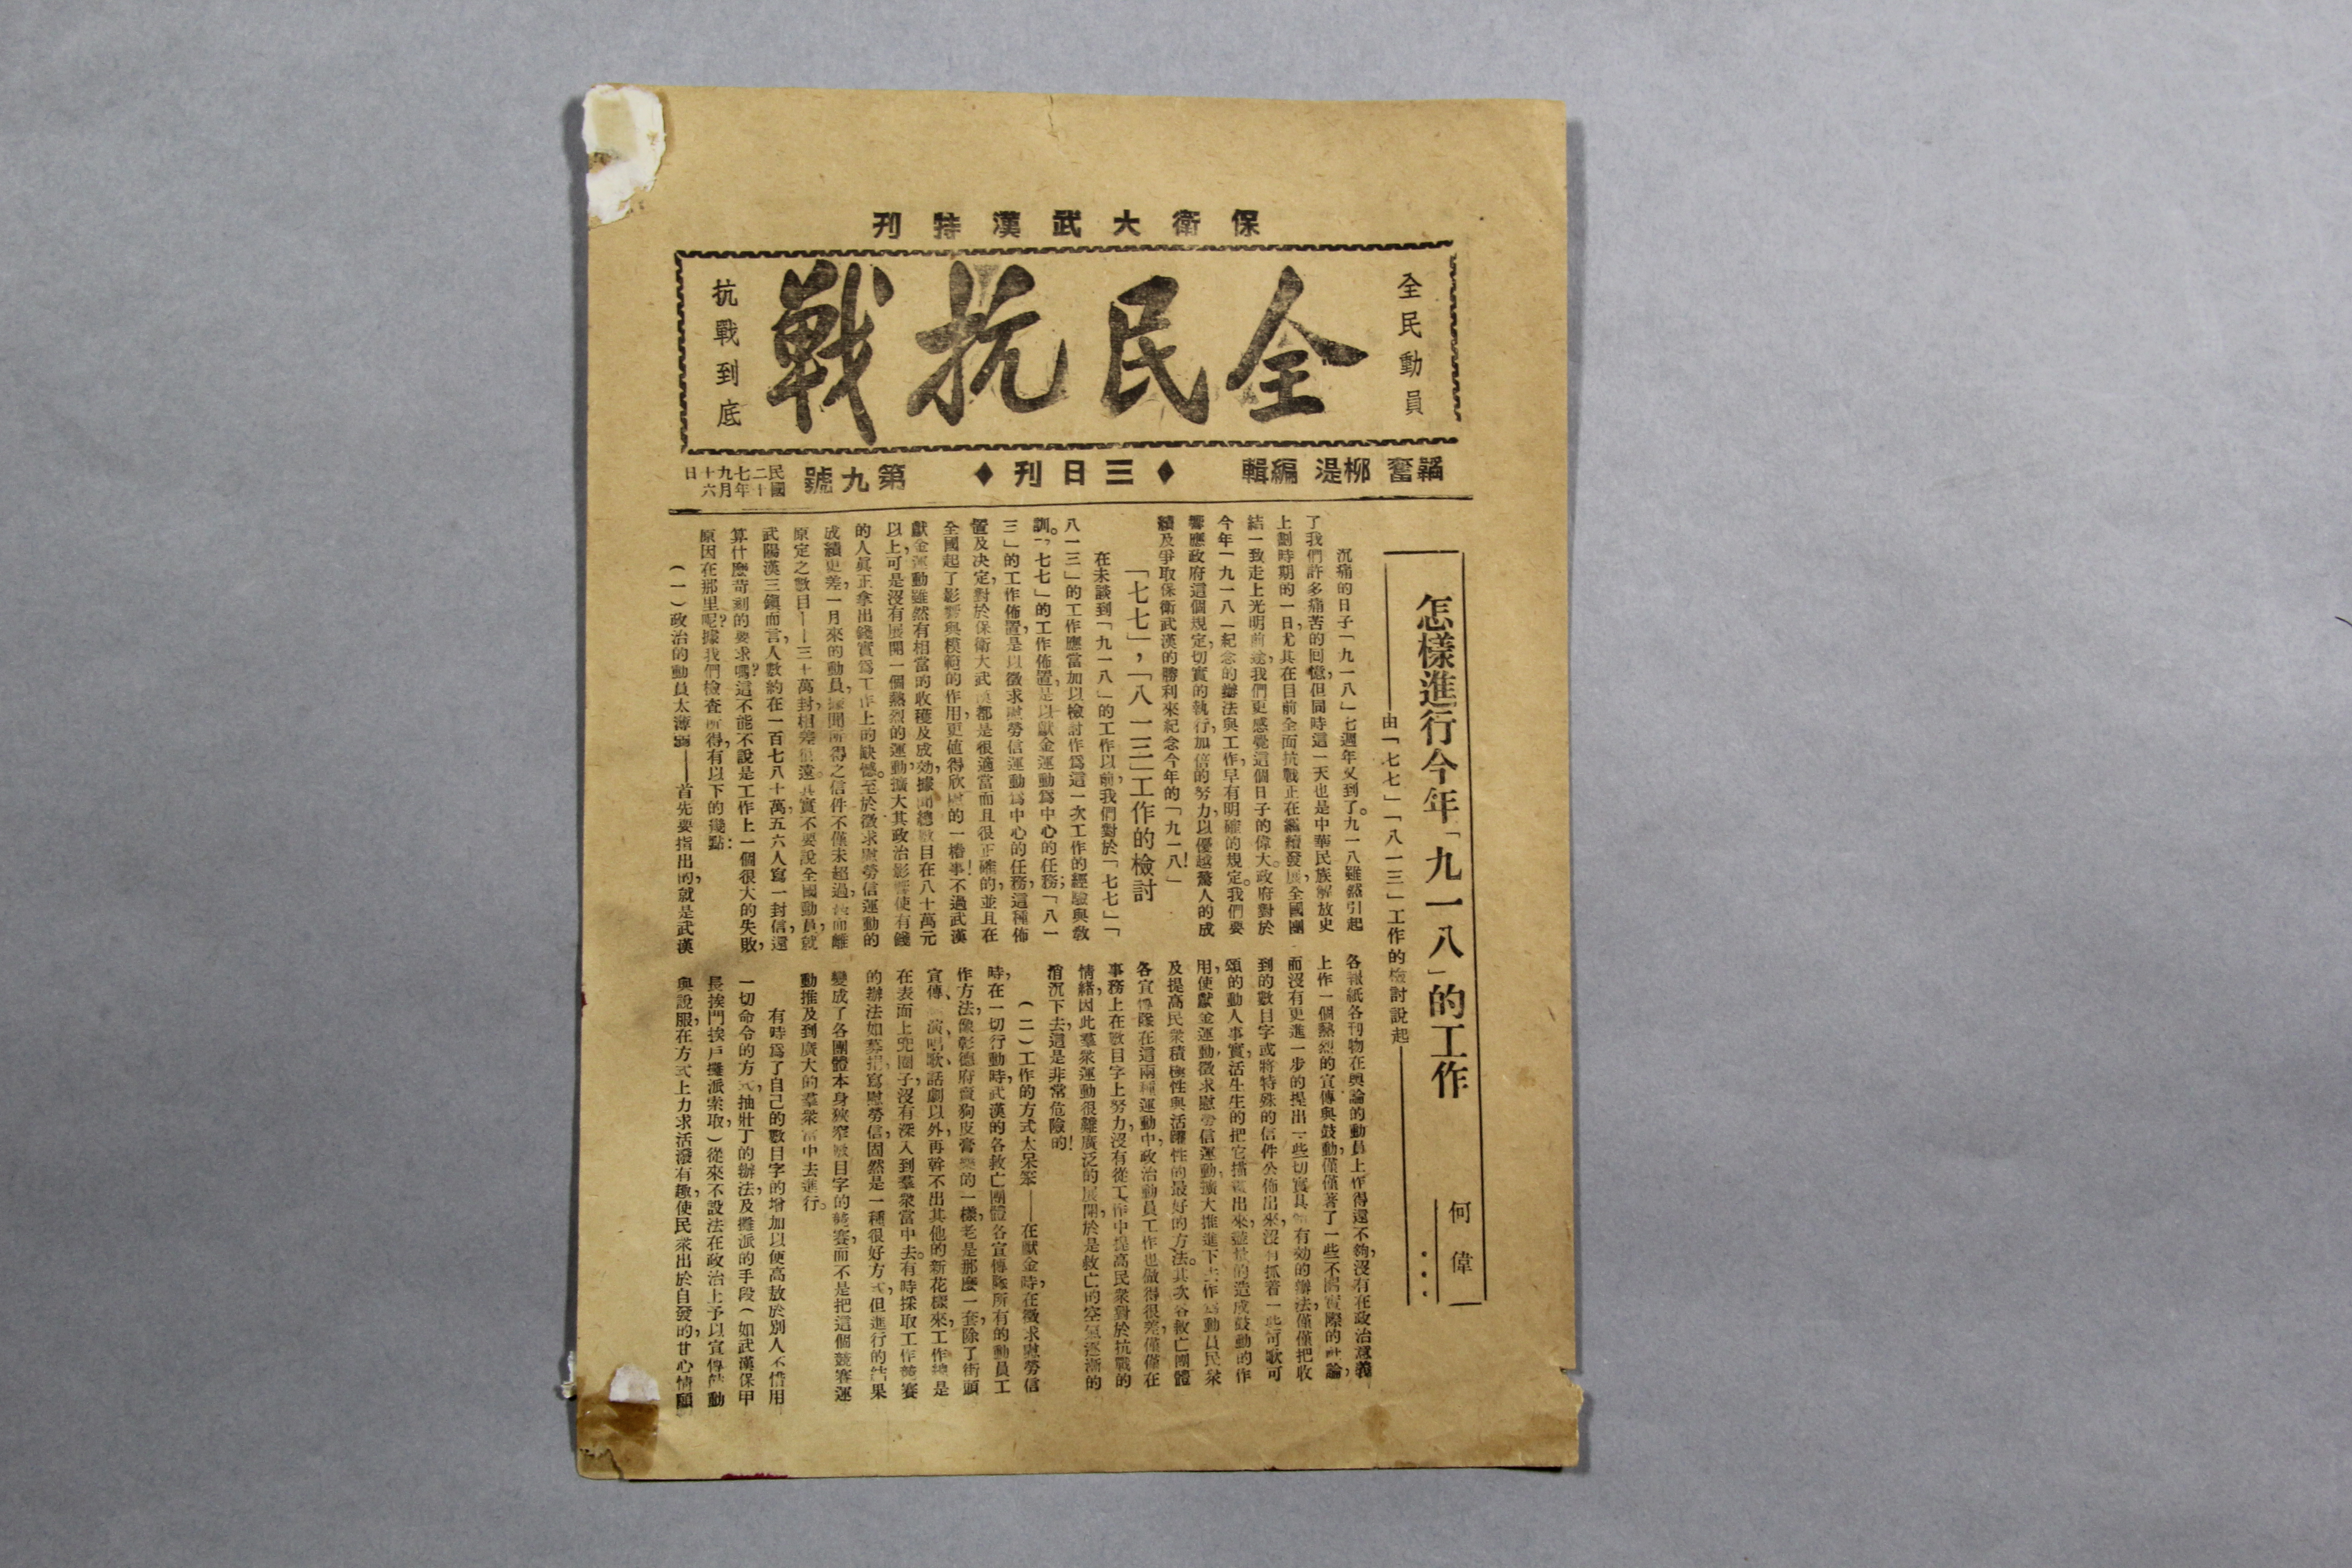 保衛大武漢特刊
全民動員
全民抗戰
抗戰到底
韜奮 柳湜 編輯
♦三日刊♦
第九號
民國二十七年九月十六日
怎樣進行今年「九一八」的工作
——由「七七」「八一三」工作的檢討說起——
何偉
沉痛的日子「九一八」七週年又到了。九一八雖然引起
了我們許多痛苦的回憶，但同時這一天也是中華民族解放史
上劃時期的一日，尤其在目前全面抗戰正在繼續發展，全國團
結一致走上光明前途，我們更感覺這個日子的偉大。政府對於
今年「九一八」紀念的辦法與工作，早有明確的規定。我們要
響應政府這個規定，切實的執行，加倍的努力，以優越驚人的成
績及爭取保衛武漢的勝利來紀念今年的「九一八」！
「七七」，「八一三」工作的檢討
在未談到「九一八」的工作以前，我們對於「七七」「
八一三」的工作應當加以檢討作爲這一次工作的經驗與教
訓。「七七」的工作佈置，是以獻金運動爲中心的任務；「八一
三」的工作佈置，是以徵求慰勞信運動爲中心的任務，這種佈
置及決定，對於保衛大武漢都是很適當而且很正確的，並且在
全國起了影響與模範的作用，更值得欣慰的一樁事！不過武漢
獻金運動雖然有相當的收穫及成效，據聞總數目在八十萬元
以上，可是沒有展開一個熱烈的運動，擴大其政治影響使有錢
的人眞正拿出錢實爲工作上的缺憾。至於徵求慰勞信運動的
成績更差，一月來的動員，據聞所得之信件不僅未超過，然而離
原定之數目——三十萬封，相差很遠。其實不要說全國動員，就
武陽漢三鎭而言，人數約在一百七八十萬，五六人寫一封信，還
算什麼苛刻的要求嗎？這不能不說是工作上一個很大的失敗，
原因在那里呢？據我們檢查所得，有以下的幾點：
（一）政治的動員太薄弱——首先要指出的，就是武漢
各報紙各刊物在輿論的動員上作得還不夠，沒有在政治意義
上作一個熱烈的宣傳與鼓動，僅僅著了一些不關實際的社論，
而沒有更進一步的提出一些切實具體有効的辦法，僅僅把收
到的數目字或將特殊的信件公佈出來，沒有抓着一些可歌可
頌的動人事實，活生生的把它描寫出來，盡量的造成鼓動的作
用，使獻金運動，徵求慰勞信運動，擴大推進下去，作爲動員民衆
及提高民衆積極性與活躍性的最好的方法。其次各救亡團體
各宣傳隊在這兩種運動中，政治動員工作也做得很差，僅僅在
事務上在數目字上努力，沒有從工作中提高民衆對於抗戰的
情緒，因此羣衆運動很難廣泛的展開，於是救亡的空氣逐漸的
消沉下去，這是非常危險的！
（二）工作的方式太呆笨——在獻金時，在徵求慰勞信
時，在一切行動時，武漢的各救亡團體各宣傳隊所有的動員工
作方法，像彰德府賣狗皮膏藥的一樣，老是那麼一套，除了街頭
宣傳、演唱歌、話劇以外，再幹不出其他的新花樣來，工作總是
在表面上兜圈子，沒有深入到羣衆當中去。有時採取工作競賽
的辦法，如募捐，寫慰勞信，固然是一種很好方式，但進行的結果
變成了各團體本身狹窄數目字的競賽，而不是把這個競賽運
動推及到廣大的羣衆當中去進行。
有時爲了自己的數目字的增加以便高敖於別人，不惜用
一切命令的方式，抽壯丁的辦法，及攤派的手段（如武漢保甲
長挨門挨戶攤派索取）從來不設法在政治上予以宣傳鼓動
與說服，在方式上力求活潑有趣，使民衆出於自發的，甘心情願